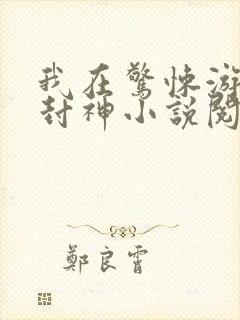 我在驚悚游
封神小說閱
鄭良霄